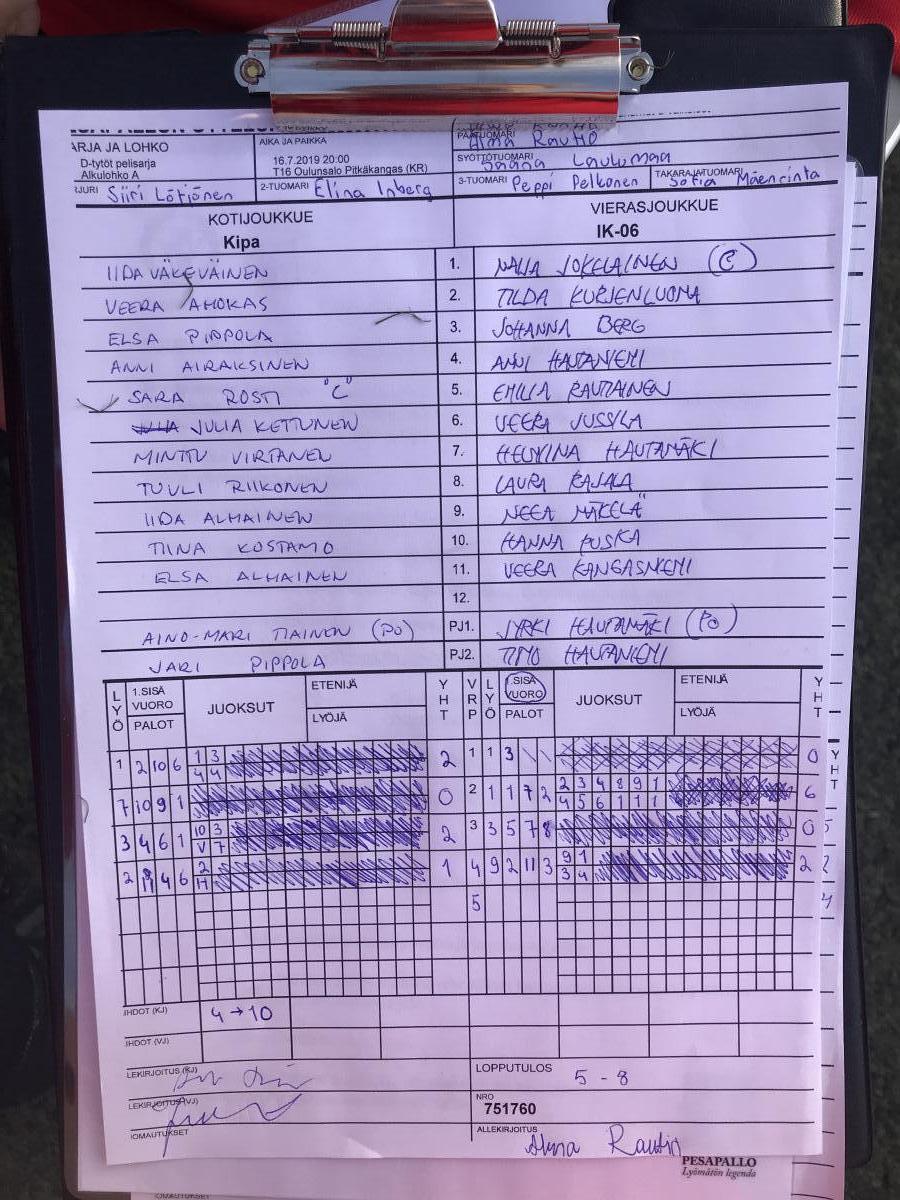 ARJA JA LOHKO
D-tytöt pelisarja
Alkulohko A
AIKA JA PAIKKA
16.7.2019 20:00
T16 Oulunsalo Pitkäkangas (KR)
PÄÄTUOMARI Alma Rautio
SYÖTTÖTUOMARI Saana Laulumaa
JURI Siiri Lötjönen
2-TUOMARI Elina Inberg
3-TUOMARI Peppi Pelkonen
TAKARAJATUOMARI Sofia Mäenrinta
KOTIJOUKKUE VIERASJOUKKUE
Kipa IK-06
IIDA VÄKEVÄINEN 1. NAIJA JOKELAINEN (C)
VEERA AHOKAS 2. TILDA KURJENLUOMA
ELSA PIPPOLA 3. JOHANNA BERG
ANNI AIRAKSINEN 4. ANNI HAUTANIEMI
SARA ROSTI "C" 5. EMILIA RAUTIAINEN
JULIA KETTUNEN 6. VEERA JUSSILA
MINTTU VIRTANEN 7. HELMIINA HAUTAMÄKI
TUULI RIIKONEN 8. LAURA RAJALA
IIDA ALHAINEN 9. NEEA MÄKELÄ
TIINA KOSTAMO 10. HANNA PUSKA
ELSA ALHAINEN 11. VEERA KANGASNIEMI
12.
AINO-MARI TIAINEN (PÖ) PJ1. JYRKI HAUTAMÄKI (PÖ)
JARI PIPPOLA PJ2. TIMO HAUTANIEMI
LYÖ 1.SISÄ VUORO PALOT JUOKSUT ETENIJÄ LYÖJÄ YHT VRP LYÖ 1.SISÄ VUORO PALOT JUOKSUT ETENIJÄ LYÖJÄ YHT
1 2 10 6 1 3 2 1 1 3 \ \ 0
4 4
7 10 9 1 0 2 1 1 7 2 2 3 4 8 9 1 6
4 5 6 1 1 1
3 4 6 1 10 3 2 3 3 5 7 8 0
V 7
2 11 4 6 2 1 4 9 2 11 3 9 1 2
H 3 4
5
IHDOT (KJ) 4→10
IHDOT (VJ)
LEKIRJOITUS (KJ)
LOPPUTULOS 5 - 8
LEKIRJOITUS (VJ)
NRO
751760
IOMAUTUKSET
ALLEKIRJOITUS Alma Rautio
PESÄPALLO
Lyömätön legenda